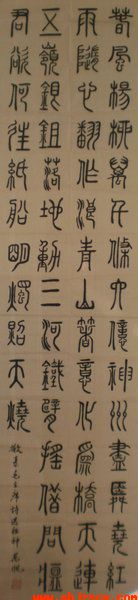 春風楊柳萬千條六億神州盡舜堯紅
雨隨心翻作浪青山箸意化為橋天連
五嶺銀鉏落地動三河鐵臂搖借問瘟
君欲何往紙船明燭照天燒
毛主席詩送瘟神